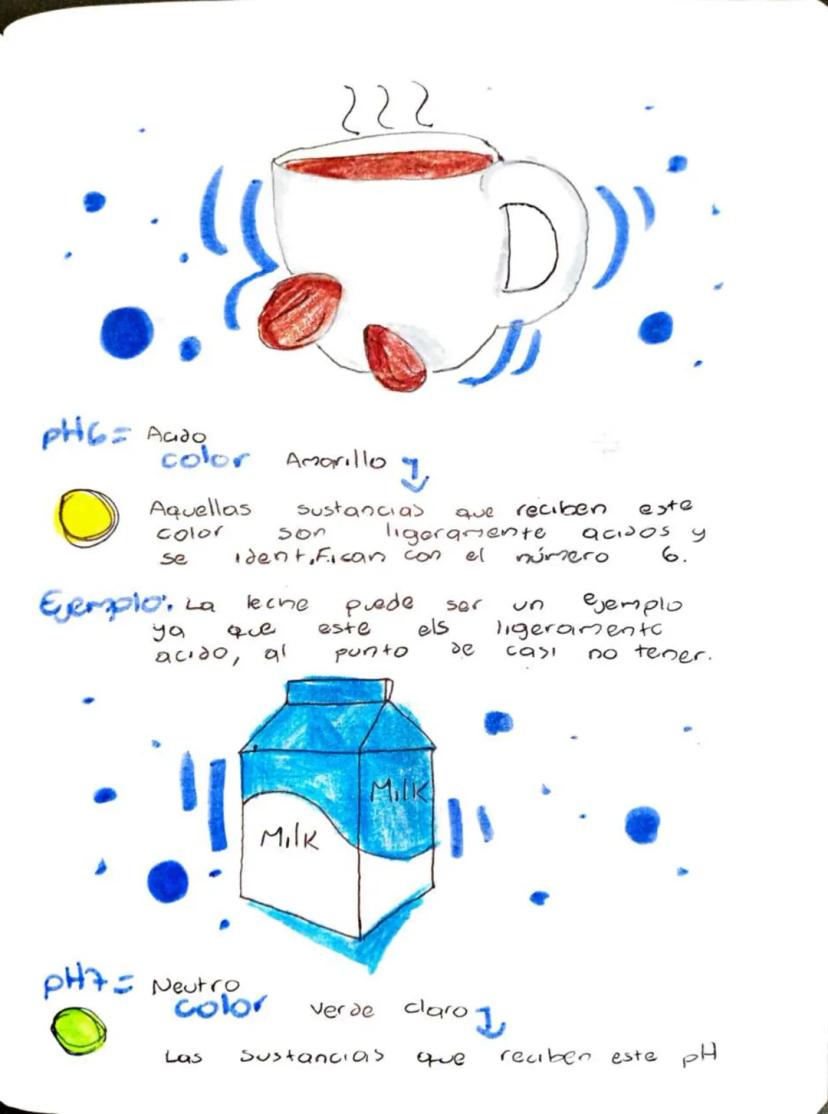 pH6= Acido
color Amarillo
Aquellas sustancias que reciben este
color son ligeramente acidos y
se identifican con el número 6.
Ejemplo: La leche puede ser un ejemplo
ya que este els ligeramente
acido, al punto de casi no tener.
Milk
Milk
pH7= Neutro
color verde claro
Las sustancias que reciben este pH